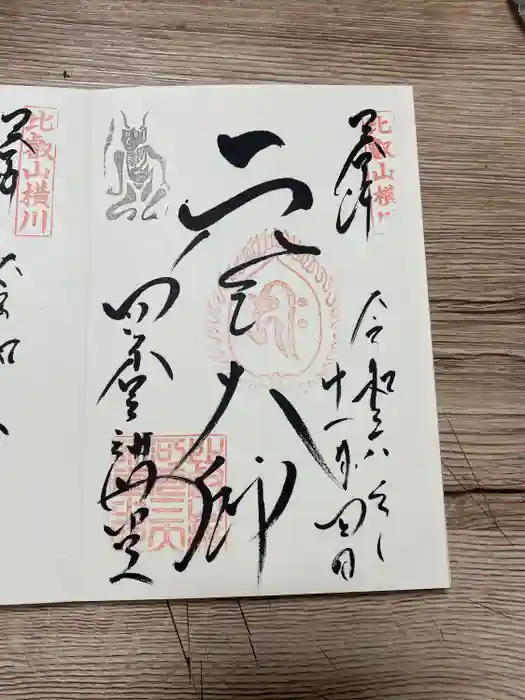 比叡山横川
奉拝
令和六年
十一月四日
元三大師
四季講堂
比叡山横川
奉拝
令和